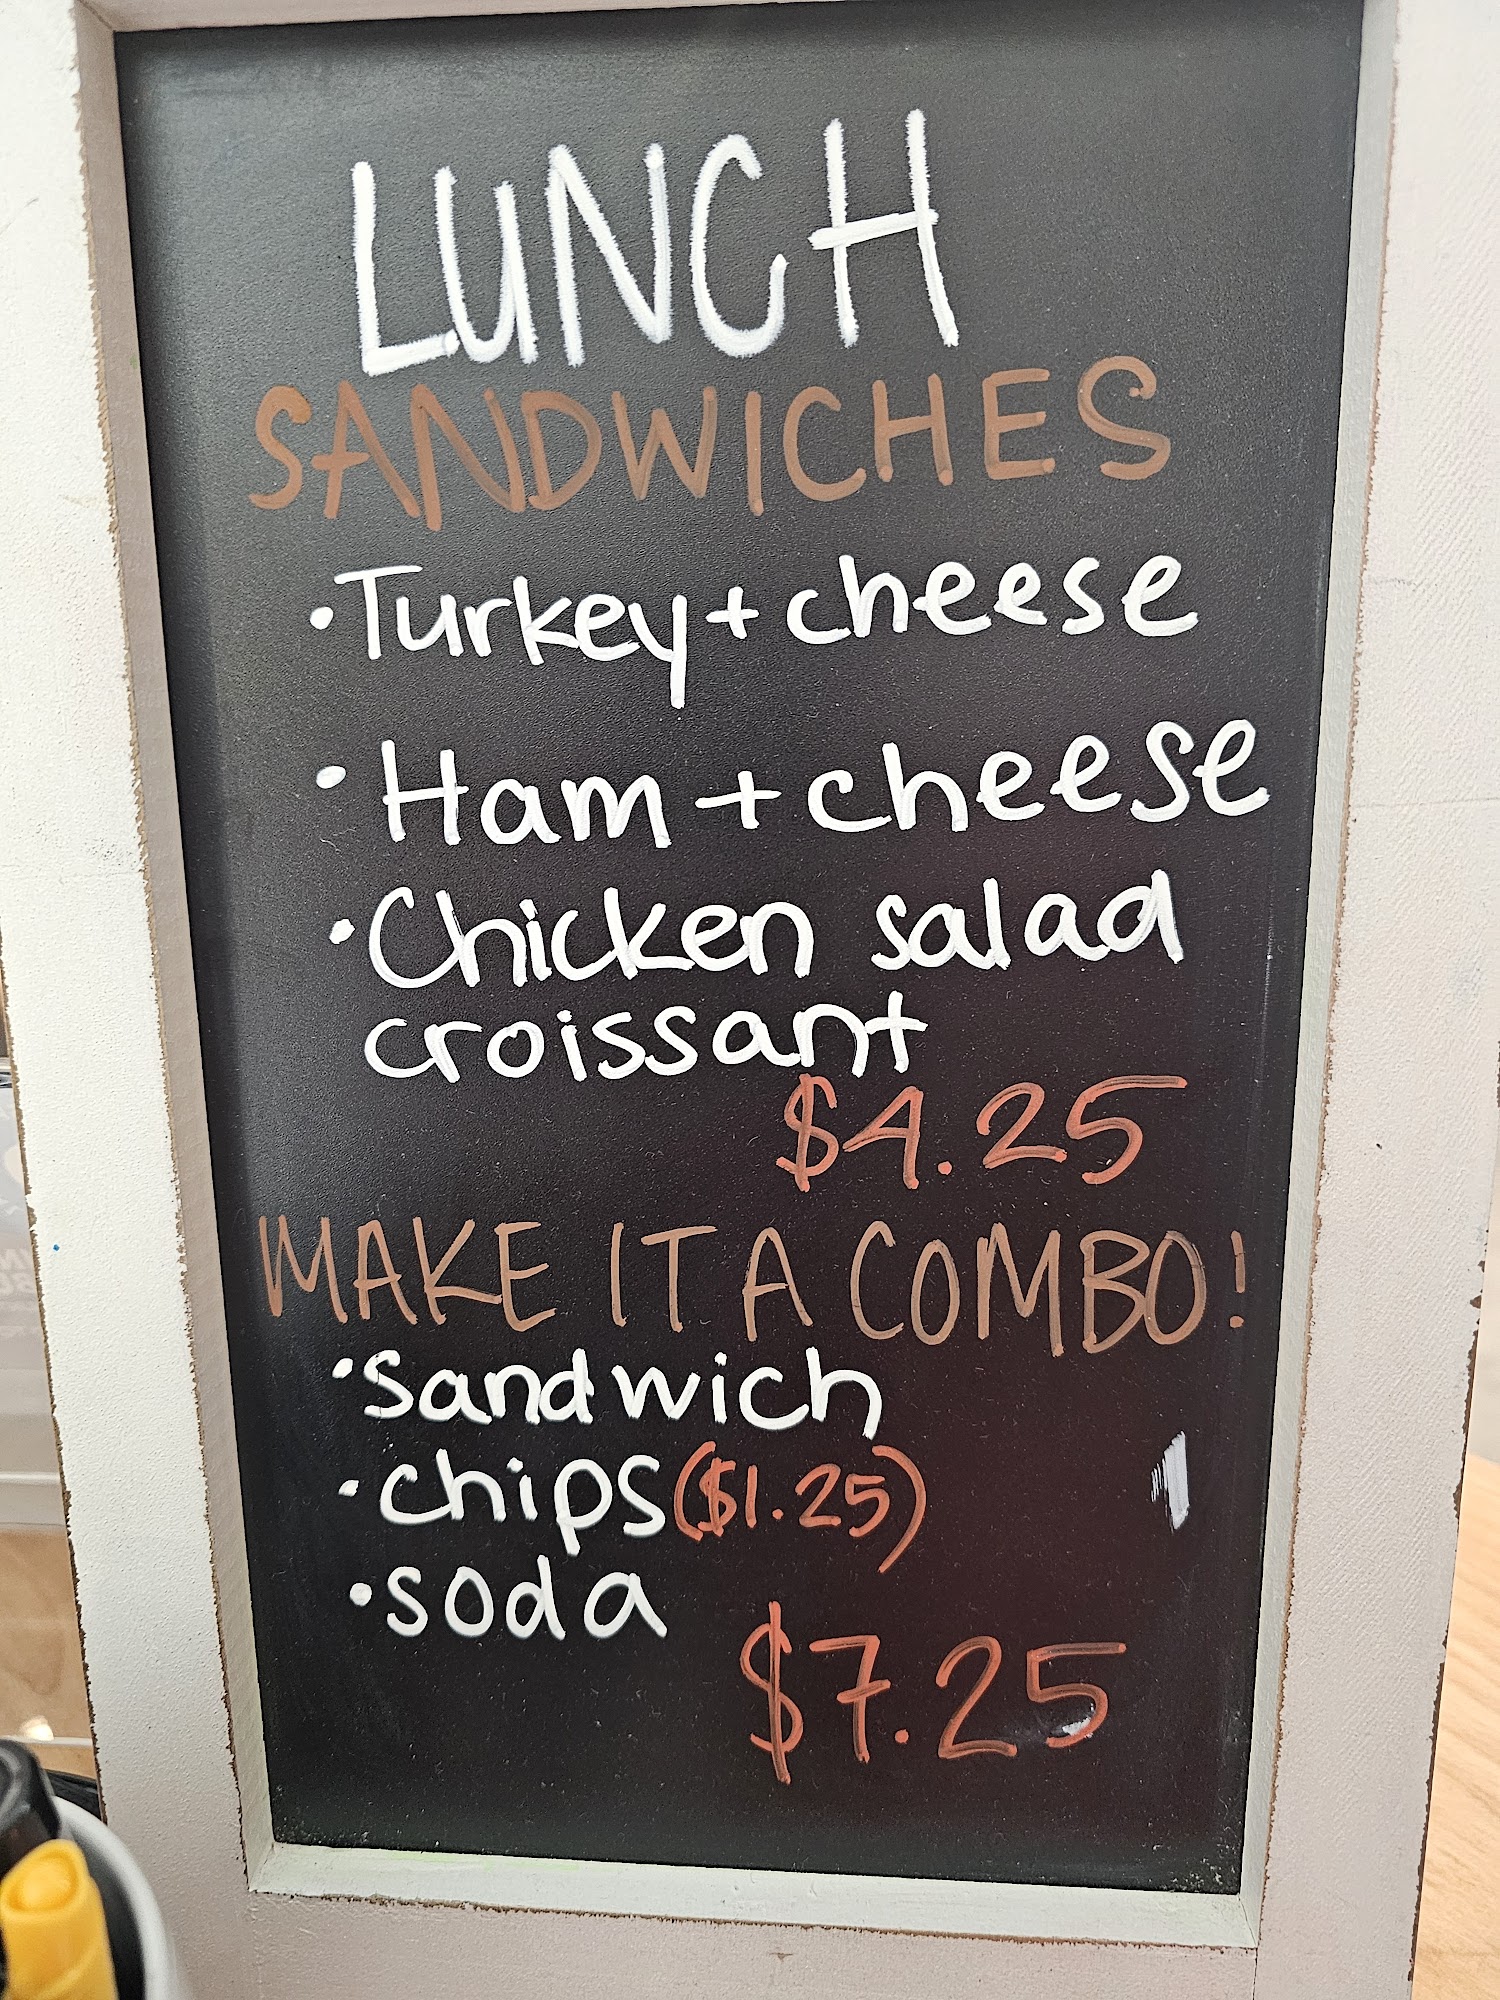 LUNCH
SANDWICHES
• Turkey + cheese
• Ham + cheese
• Chicken salad
croissant
$4.25
MAKE IT A COMBO!
• Sandwich
• chips ($1.25)
• soda
$7.25